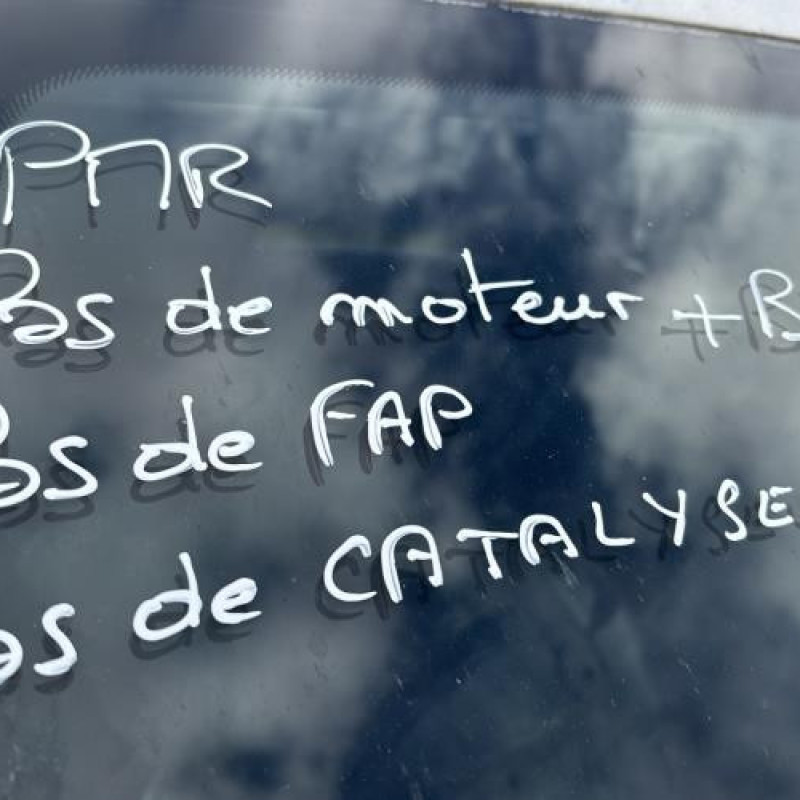 PMR
Pas de moteur + B
Pas de FAP
as de CATALYSE